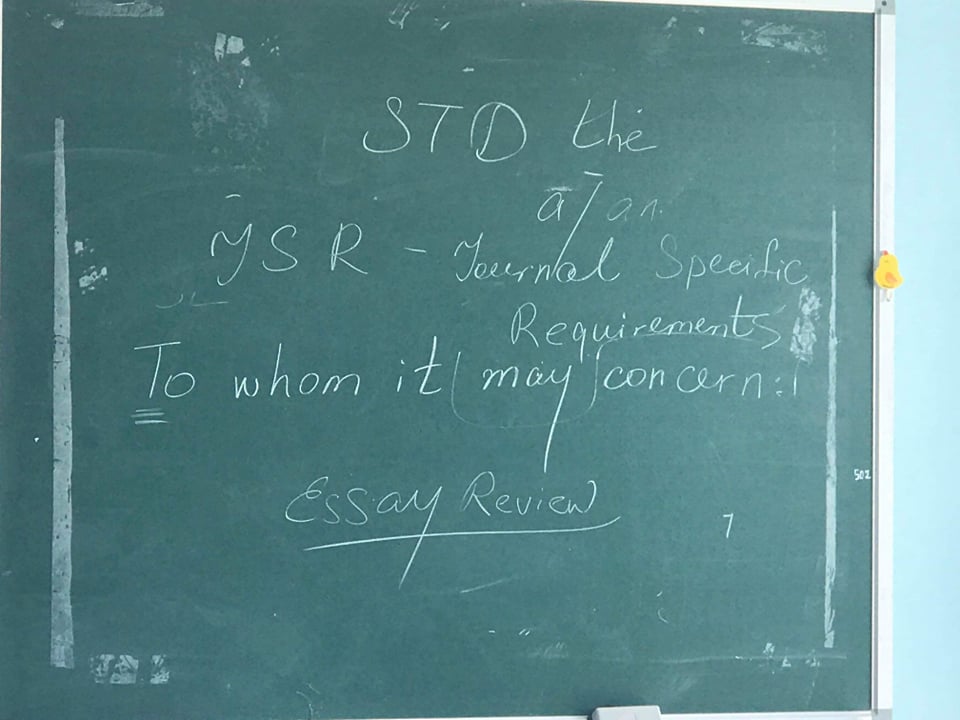 STD the
a/an.
JSR - Journal Specific
Requirements
To whom it may concern:
Essay Review
7
502